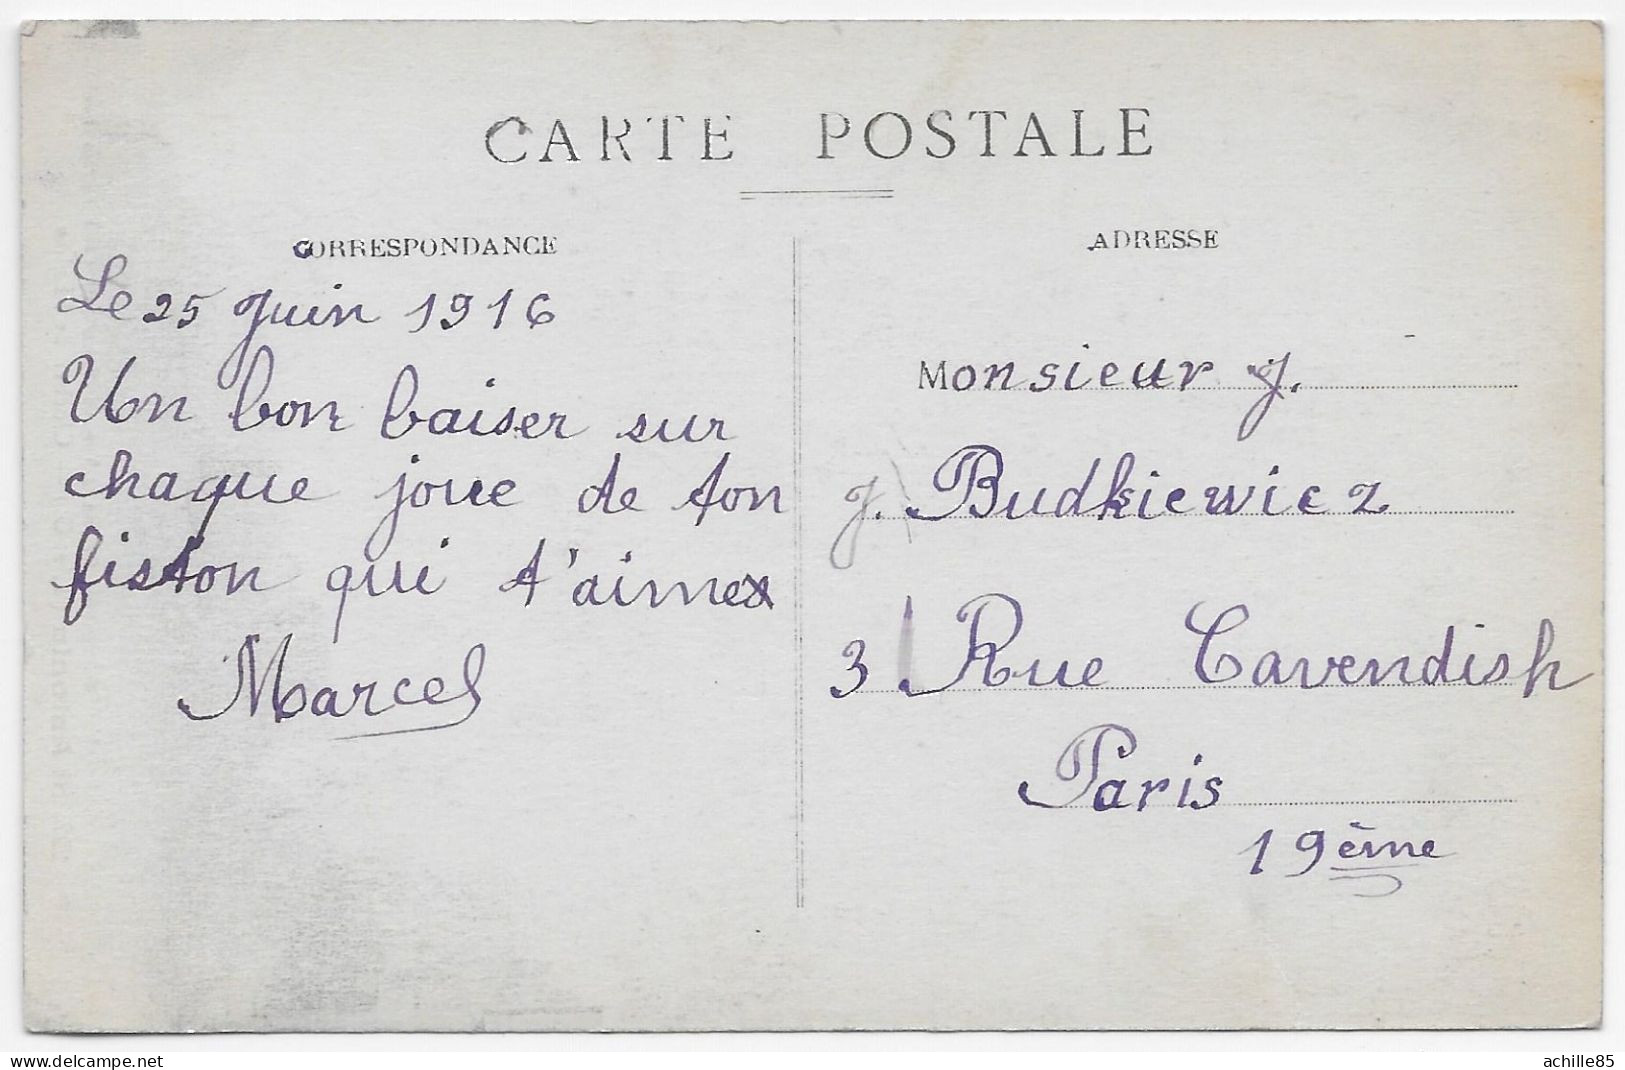 CARTE POSTALE
CORRESPONDANCE
Le 25 Juin 1916
Un bon baiser sur
chaque joue de ton
fiston qui t'aime
Marcel
ADRESSE
Monsieur J.
J. Budkiewicz
3 Rue Cavendish
Paris
19ème
www.delcampe.net
achille85